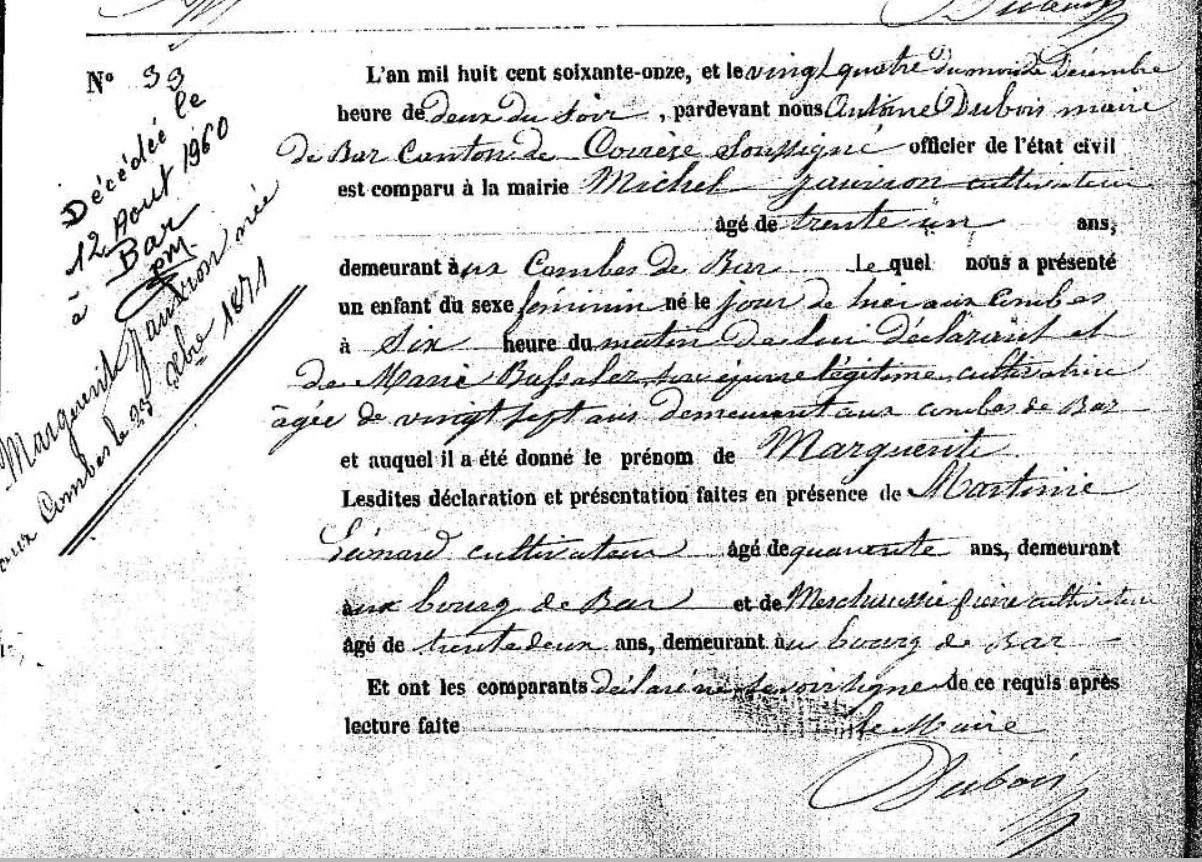 N° 33
L'an mil huit cent soixante-onze, et le vingt quatre du mois de Décembre
heure de deux du soir, pardevant nous Antoine Dubois maire
de Bar Canton de Corrèze Soussigné officier de l'état civil
est comparu à la mairie Michel Jauvion cultivateur
âgé de trente un ans,
demeurant aux Combes de Bar lequel nous a présenté
un enfant du sexe féminin né le jour de hier aux Combes
à Six heure du matin de lui déclarant et
de Marie son épouse légitime cultivatrice
âgée de vingt sept ans demeurant aux combes de Bar
et auquel il a été donné le prénom de Marguerite
Lesdites déclaration et présentation faites en présence de Martinie
Léonard cultivateur âgé de quarente ans, demeurant
aux bourg de Bar et de pierre cultivateur
âgé de trente deux ans, demeurant au bourg de Bar
Et ont les comparants déclaré ne savoir signer de ce requis après
lecture faite le Maire
Dubois
Décédée le
12 Aout 1960
à Bar
pm
Marguerite Jauvion née
aux Combes le 23 xbre 1871